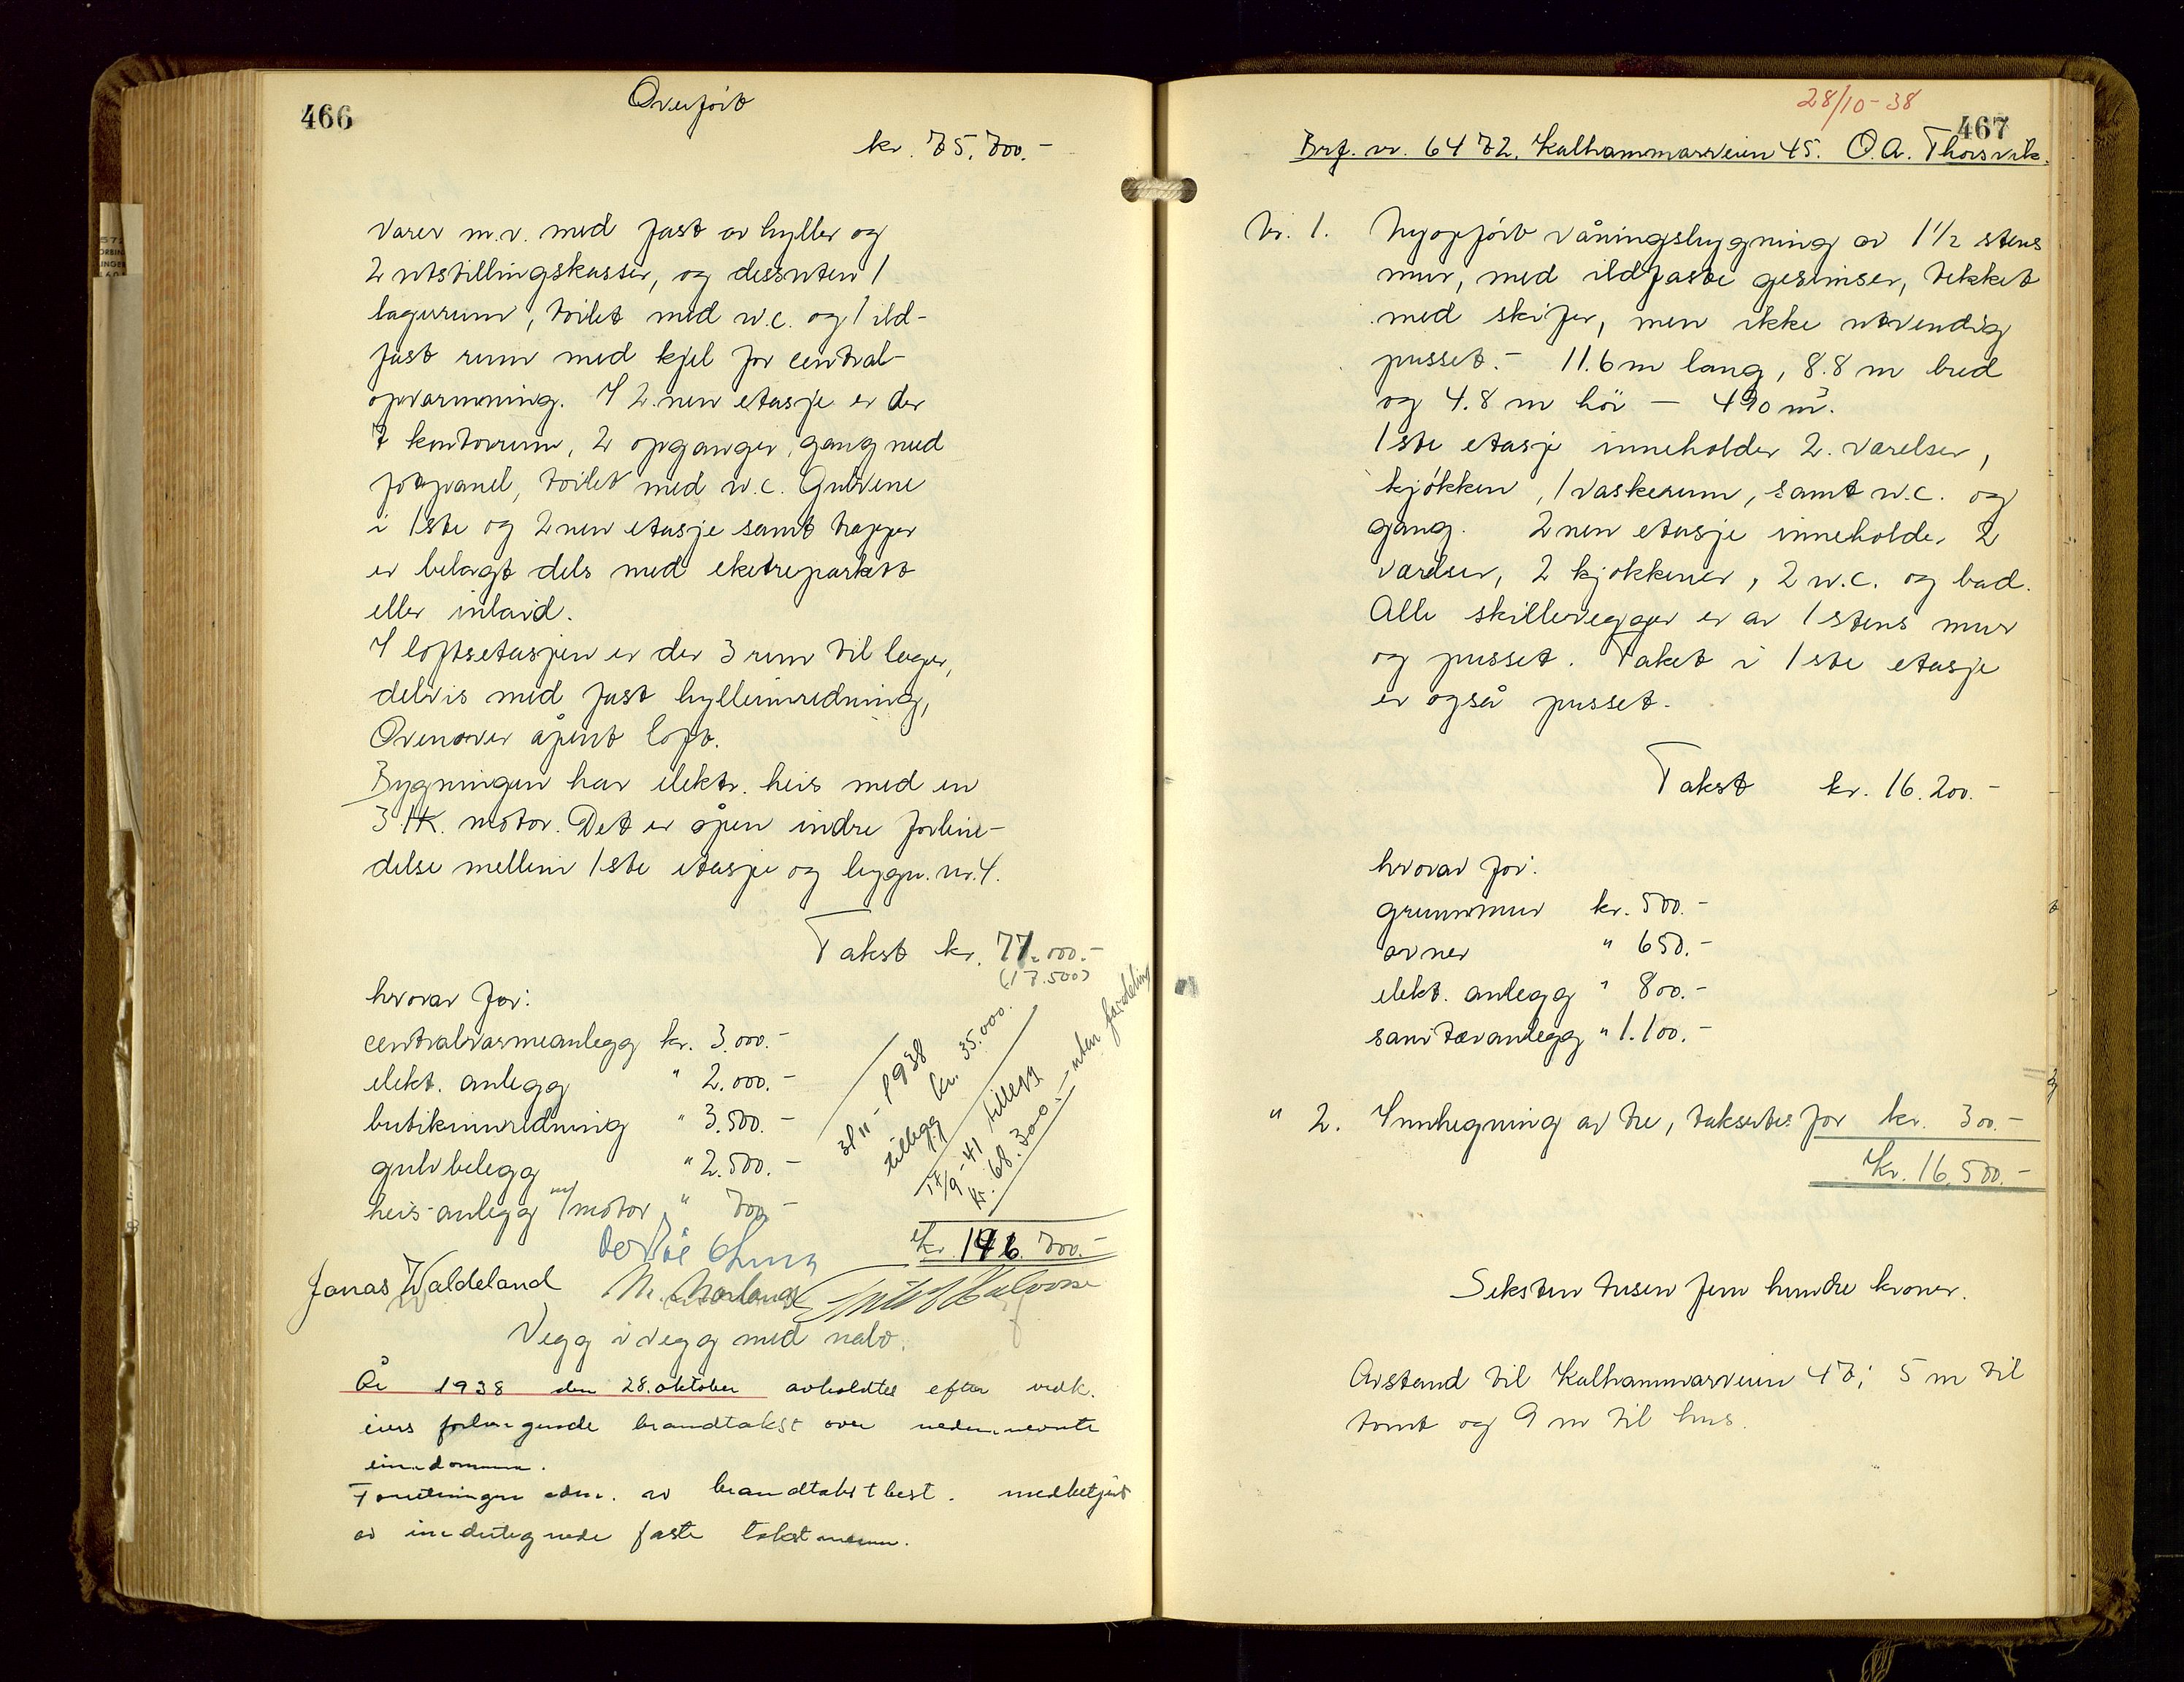 466
Overført
kr. 75.700.-
varer m.v. med fast av hyller og
2 utstillingskasser, og dessuten 1
lagerrum, toilet med w.c. og 1 ild-
fast rum med kjel for central-
opvarmning. I 2.nen etasje er der
7 kontorrum, 2 opganger, gang med
fotpanel, toilet med w.c. Gulvene
i 1ste og 2nen etasje samt trapper
er belagt dels med eketreparkett
eller inlaid.
I loftsetasjen er der 3 rum til lager,
delvis med fast hylleinnredning,
Ovenover åpent loft.
Bygningen har elektr. heis med en
3 HK. motor. Det er åpen indre forbin-
delse mellem 1ste etasje og bygn. nr. 4.
Takst kr. 77.000.-
(17.500)
hvorav for:
centralvarmeanlegg kr. 3.000.-
elekt. anlegg " 2.000.-
butikinnredning " 3.500.-
gulvbelegg " 2.500.-
heis-anlegg m/motor " 700.-
1938
tillegg kr. 35.000.
17/9-41 tillegg
kr. 68.300.- uten fordeling
Kr. 146.700.-
Jonas Waldeland
Vegg i vegg med nabo.
År 1938 den 28.oktober avholdtes efter vedk.
eiers forlangende brandtakst over nedennevnte
eiendommer.
Forretningen adm. av brandtakstbest. medbetjent
av undertegnede faste takstmenn.
28/10-38
467
Brf. nr. 6472. Kalhammarveien 45. O.A. Thorsvik.
Nr. 1. Nyopført våningsbygning av 1 1/2 stens
mur, med ildfaste gesimser, tekket
med skifer, men ikke utvendig
pusset.- 11.6 m lang, 8.8 m bred
og 4.8 m høi - 490 m³.
1ste etasje inneholder 2. værelser,
kjøkken, 1 vaskerum, samt w.c. og
gang. 2nen etasje inneholder 2
værelser, 2 kjøkkener, 2 w.c. og bad.
Alle skillevegger er av 1 stens mur
og pusset. Taket i 1ste etasje
er også pusset.
Takst kr. 16.200.-
hvorav for:
grunnmur kr. 500.-
ovner " 650.-
elekt. anlegg " 800.-
sanitæranlegg " 1.100.-
" 2. Innhegning av tre, takseres for kr. 300.-
Kr. 16.500.-
Seksten tusen fem hundre kroner.
Avstand til Kalhammarveien 47: 5 m til
tomt og 9 m til hus.